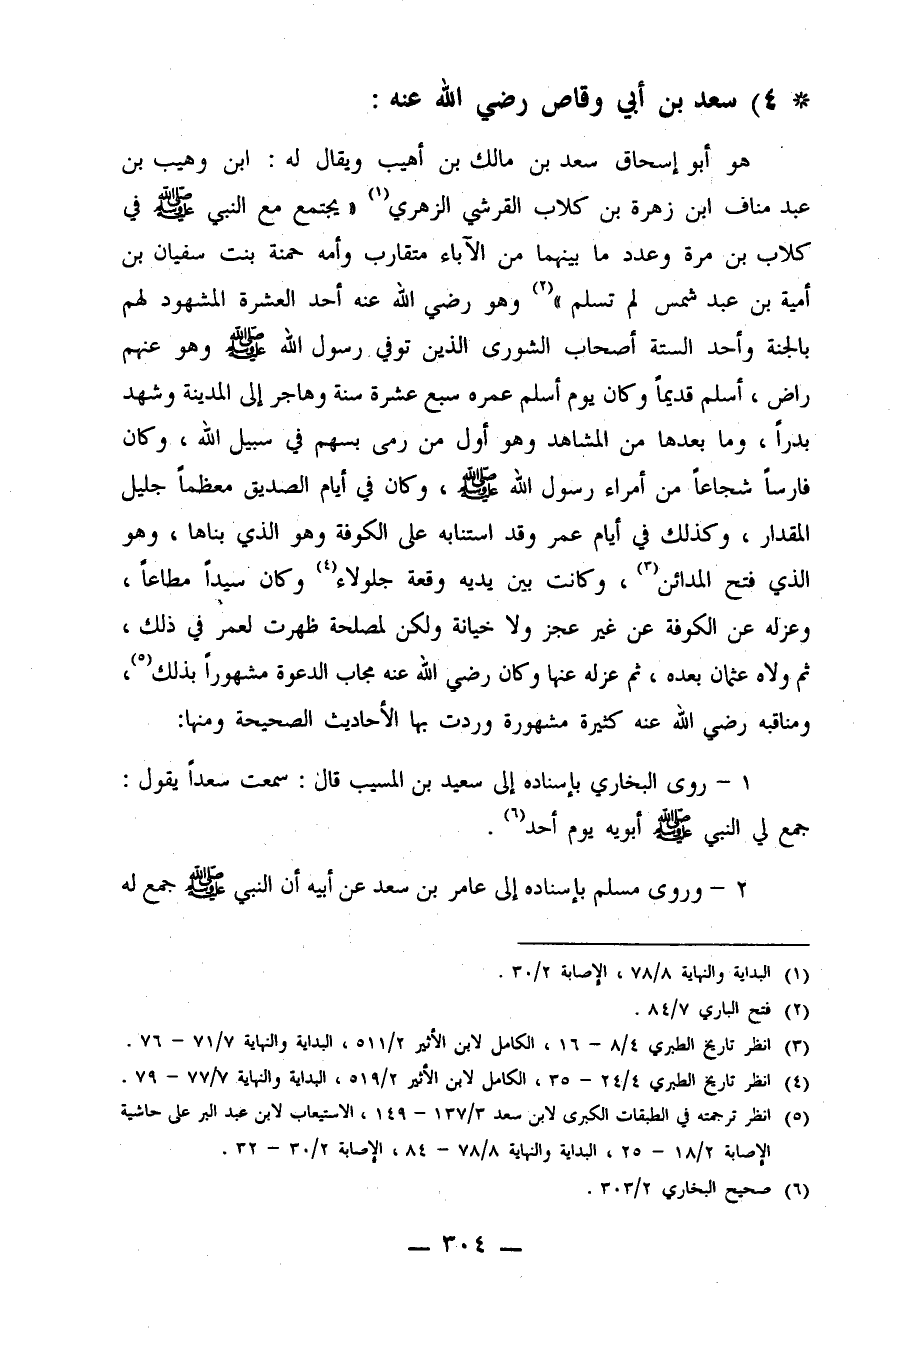 * ٤) سعد بن أبي وقاص رضي الله عنه :
هو أبو إسحاق سعد بن مالك بن أهيب ويقال له : ابن وهيب بن
عبد مناف ابن زهرة بن كلاب القرشي الزهري(١) « يجتمع مع النبي ﷺ في
كلاب بن مرة وعدد ما بينهما من الآباء متقارب وأمه حمنة بنت سفيان بن
أمية بن عبد شمس لم تسلم »(٢) وهو رضي الله عنه أحد العشرة المشهود لهم
بالجنة وأحد الستة أصحاب الشورى الذين توفي رسول الله ﷺ وهو عنهم
راض ، أسلم قديماً وكان يوم أسلم عمره سبع عشرة سنة وهاجر إلى المدينة وشهد
بدراً ، وما بعدها من المشاهد وهو أول من رمى بسهم في سبيل الله ، وكان
فارساً شجاعاً من أمراء رسول الله ﷺ ، وكان في أيام الصديق معظماً جليل
المقدار ، وكذلك في أيام عمر وقد استنابه على الكوفة وهو الذي بناها ، وهو
الذي فتح المدائن(٣) ، وكانت بين يديه وقعة جلولاء(٤) وكان سيداً مطاعاً ،
وعزله عن الكوفة عن غير عجز ولا خيانة ولكن لمصلحة ظهرت لعمر في ذلك ،
ثم ولاه عثمان بعده ، ثم عزله عنها وكان رضي الله عنه مجاب الدعوة مشهوراً بذلك(٥)،
ومناقبه رضي الله عنه كثيرة مشهورة وردت بها الأحاديث الصحيحة ومنها:
١ – روى البخاري بإسناده إلى سعيد بن المسيب قال : سمعت سعداً يقول :
جمع لي النبي ﷺ أبويه يوم أحد(٦) .
٢ – وروى مسلم بإسناده إلى عامر بن سعد عن أبيه أن النبي ﷺ جمع له
(١) البداية والنهاية ٧٨/٨ ، الإصابة ٣٠/٢ .
(٢) فتح الباري ٨٤/٧ .
(٣) انظر تاريخ الطبري ٨/٤ – ١٦ ، الكامل لابن الأثير ٥١١/٢ ، البداية والنهاية ٧١/٧ – ٧٦ .
(٤) انظر تاريخ الطبري ٢٤/٤ – ٣٥ ، الكامل لابن الأثير ٥١٩/٢ ، البداية والنهاية ٧٧/٧ – ٧٩ .
(٥) انظر ترجمته في الطبقات الكبرى لابن سعد ١٣٧/٣ – ١٤٩ ، الاستيعاب لابن عبد البر على حاشية
الإصابة ١٨/٢ – ٢٥ ، البداية والنهاية ٧٨/٨ – ٨٤ ، الإصابة ٣٠/٢ – ٣٢ .
(٦) صحيح البخاري ٣٠٣/٢ .
— ٣٠٤ —